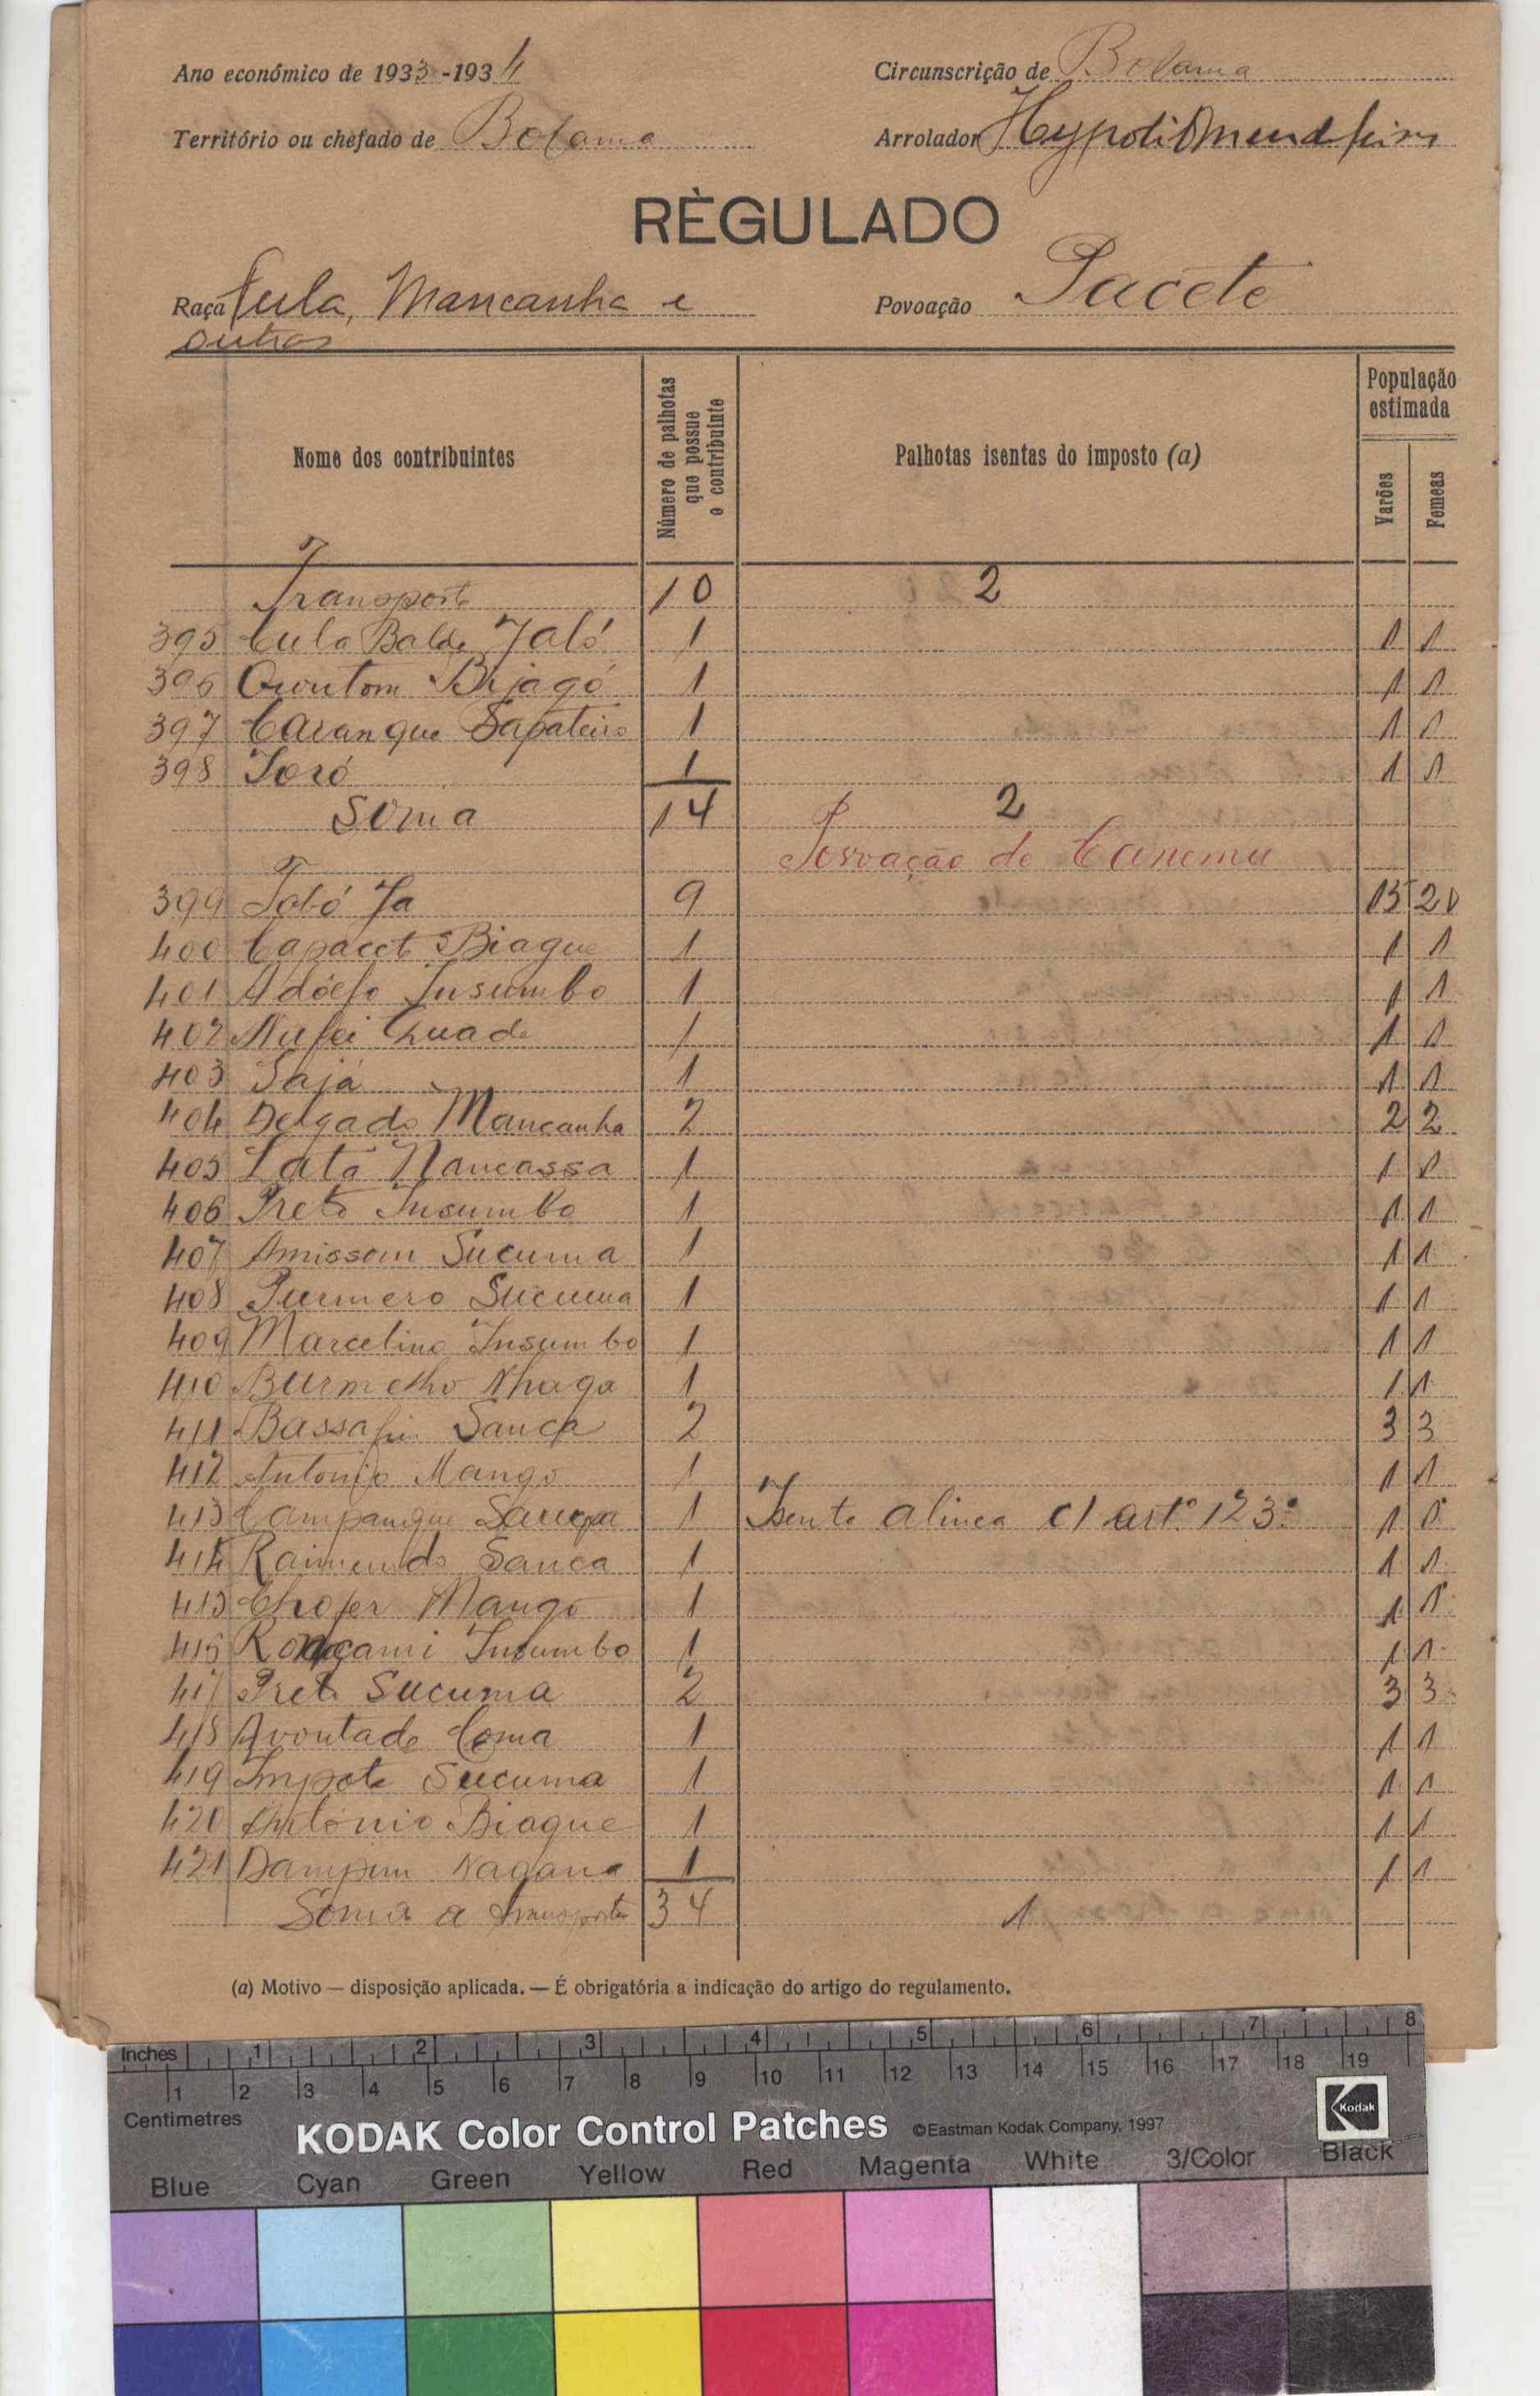 Ano económico de 1933-1934
Circunscrição de Bolama
Território ou chefado de Bolama
Arrolador
RÈGULADO
Raça Fula, Mancanha e
outros
Povoação Pacete
Nome dos contribuintes
Número de palhotas
que possue
o contribuinte
Palhotas isentas do imposto (a)
População
estimada
Varões
Femeas
Transporte 10 2
395 Cula Balde Jaló 1 1 1
396 Bijagó 1 1 1
397 Caranque Sapateiro 1 1 1
398 Toró 1 1 1
Soma 14 2
Povoação de Canema
399 Tobó Ja 9 15 20
400 Capacet Biague 1 1 1
401 Adólfo Insumbo 1 1 1
402 Nufei Quade 1 1 1
403 Sajá 1 1 1
404 Delgado Mancanha 2 2 2
405 Lata Nancassa 1 1 1
406 Preto Insumbo 1 1 1
407 Amissom Sucuma 1 1 1
408 Purmero Sucuma 1 1 1
409 Marcelino Insumbo 1 1 1
410 Burmelho Nhaga 1 1 1
411 Bassafim Sanca 2 3 3
412 Antonio Mango 1 1 1
413 Campanque Sanca 1 Isento alinea c/ artº 123º 1 1
414 Raimundo Sanca 1 1 1
415 Chofer Mango 1 1 1
416 Insumbo 1 1 1
417 Preto Sucuma 2 3 3
418 Avontade Coma 1 1 1
419 Impote Sucuma 1 1 1
420 António Biague 1 1 1
421 Dampim Nagana 1 1 1
Soma a transportar 34 1
(a) Motivo — disposição aplicada. — É obrigatória a indicação do artigo do regulamento.
Inches 1 2 3 4 5 6 7 8
1 2 3 4 5 6 7 8 9 10 11 12 13 14 15 16 17 18 19
Centimetres
KODAK Color Control Patches ©Eastman Kodak Company, 1997
Kodak
Blue Cyan Green Yellow Red Magenta White 3/Color Black